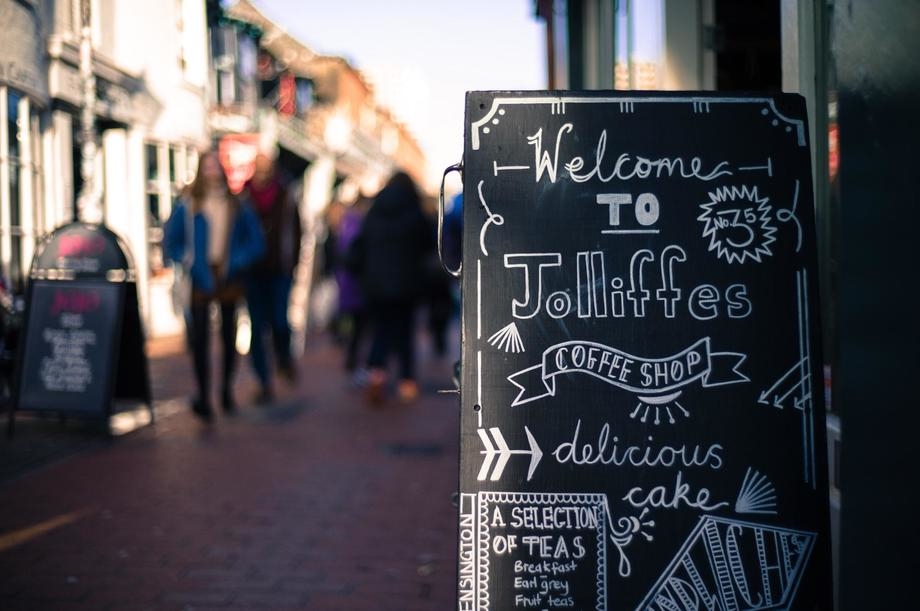 Welcome
TO
No. 35
Jolliffes
COFFEE SHOP
delicious
cake
A SELECTION
OF TEAS
Breakfast
Earl grey
Fruit teas